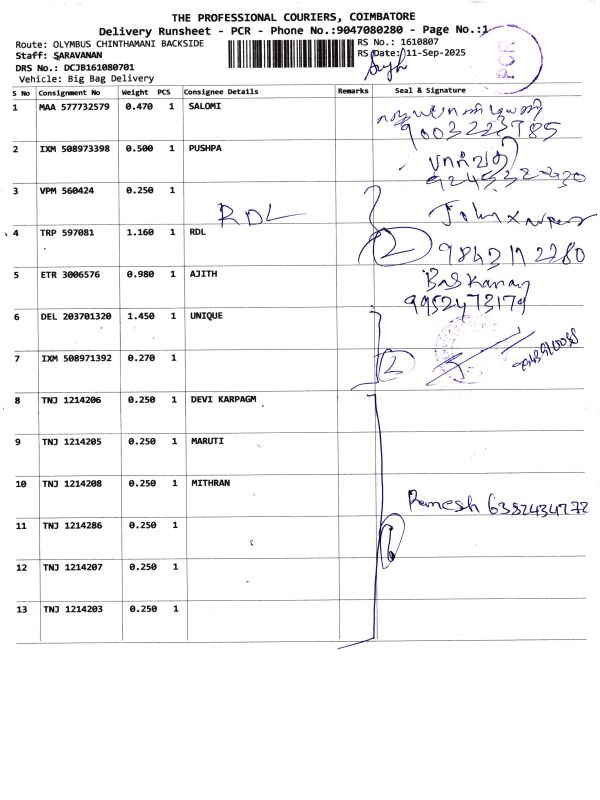 THE PROFESSIONAL COURIERS, COIMBATORE
Delivery Runsheet - PCR - Phone No.:9047080280 - Page No.:1
Route: OLYMBUS CHINTHAMANI BACKSIDE
RS No.: 1610807
Staff: SARAVANAN
RS Date:11-Sep-2025
DRS No.: DCJB161080701
Vehicle: Big Bag Delivery
PCR
S No Consignment No Weight PCS Consignee Details Remarks Seal & Signature
1 MAA 577732579 0.470 1 SALOMI
9003223785
2 IXM 508973398 0.500 1 PUSHPA
3 VPM 560424 0.250 1
RDL
4 TRP 597081 1.160 1 RDL
2
5 ETR 3006576 0.980 1 AJITH
Baskaran
9952473179
6 DEL 203701320 1.450 1 UNIQUE
7 IXM 508971392 0.270 1
2
8 TNJ 1214206 0.250 1 DEVI KARPAGM
9 TNJ 1214205 0.250 1 MARUTI
10 TNJ 1214208 0.250 1 MITHRAN
Ramesh 6382434772
11 TNJ 1214286 0.250 1
6
12 TNJ 1214207 0.250 1
13 TNJ 1214203 0.250 1